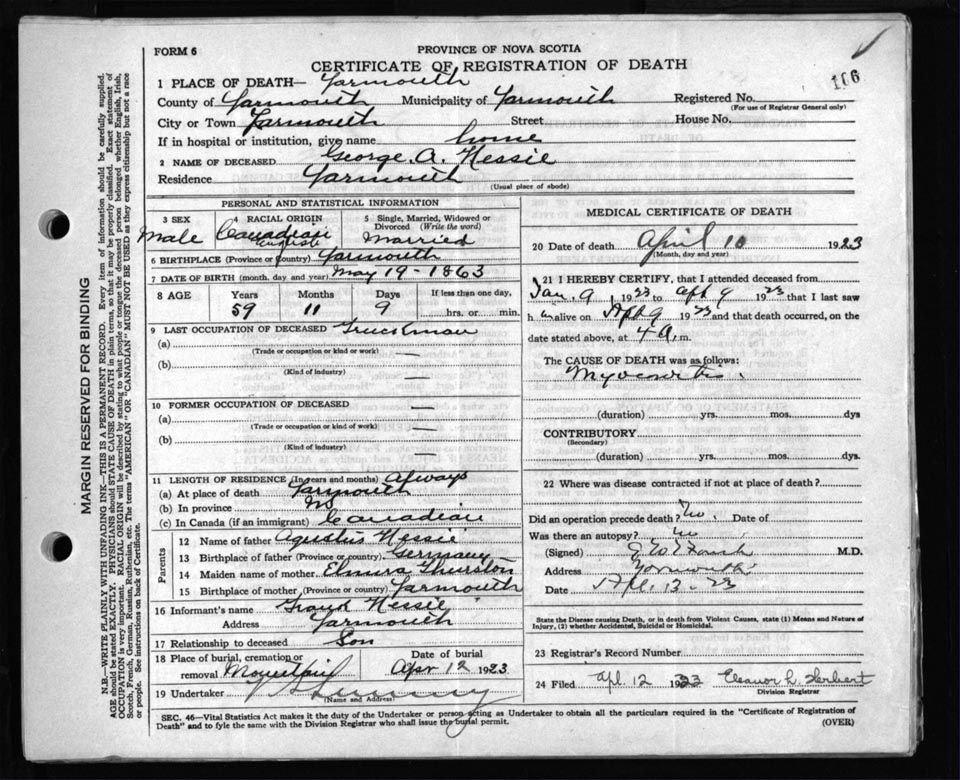 FORM 6
PROVINCE OF NOVA SCOTIA
CERTIFICATE OF REGISTRATION OF DEATH
106
1 PLACE OF DEATH— Yarmouth
County of Yarmouth Municipality of Yarmouth Registered No.
(For use of Registrar General only)
City or Town Yarmouth Street House No.
If in hospital or institution, give name home
2 NAME OF DECEASED George. A. Hessie
Residence Yarmouth
(Usual place of abode)
PERSONAL AND STATISTICAL INFORMATION
3 SEX Male
4 RACIAL ORIGIN Canadian
English
5 Single, Married, Widowed or Divorced (Write the word) Married
6 BIRTHPLACE (Province or country) Yarmouth
7 DATE OF BIRTH (month, day and year) May 19 - 1863
8 AGE Years Months Days If less than one day,
59 11 9 hrs. or min.
9 LAST OCCUPATION OF DECEASED Truckman
(a) —
(Trade or occupation or kind or work)
(b) —
(Kind of industry)
10 FORMER OCCUPATION OF DECEASED —
(a) —
(Trade or occupation or kind of work)
(b) —
(Kind of industry)
11 LENGTH OF RESIDENCE (In years and months) Always
(a) At place of death Yarmouth
(b) In province NS
(c) In Canada (if an immigrant) Canadian
Parents
12 Name of father Agustus Hessie
13 Birthplace of father (Province or country) Germany
14 Maiden name of mother Elmira Thurston
15 Birthplace of mother (Province or country) Yarmouth
16 Informant's name Frank Hessie
Address Yarmouth
17 Relationship to deceased Son
18 Place of burial, cremation or removal
Date of burial
Apr 12 1923
19 Undertaker
(Name and Address)
MEDICAL CERTIFICATE OF DEATH
20 Date of death April 10 1923
(Month, day and year)
21 I HEREBY CERTIFY, that I attended deceased from
Jan. 9 1923 to Apl 9 1923 that I last saw
h alive on Apl 9 1923 and that death occurred, on the
date stated above, at 4 a, m.
The CAUSE OF DEATH was as follows:
Myocarditis.
(duration) yrs. mos. dys
CONTRIBUTORY
(Secondary)
(duration) yrs. mos. dys.
22 Where was disease contracted if not at place of death?
Did an operation precede death? No. Date of
Was there an autopsy? no
(Signed) M.D.
Address Yarmouth
Date Apl. 13 - 23
State the Disease causing Death, or in death from Violent Causes, state (1) Means and Nature of
Injury, (2) whether Accidental, Suicidal or Homicidal.
23 Registrar's Record Number
24 Filed Apl. 12 1923 Eleanor L Herbert
Division Registrar
SEC. 46—Vital Statistics Act makes it the duty of the Undertaker or person acting as Undertaker to obtain all the particulars required in the "Certificate of Registration of
Death" and to fyle the same with the Division Registrar who shall issue the burial permit.
(OVER)
MARGIN RESERVED FOR BINDING
N.B.—WRITE PLAINLY WITH UNFADING INK—THIS IS A PERMANENT RECORD. Every item of information should be carefully supplied.
AGE should be stated EXACTLY. PHYSICIANS should STATE CAUSE OF DEATH in plain terms, so that it may be properly classified. Exact statement of
OCCUPATION is very important. RACIAL ORIGIN will be described by stating to what people or tongue the deceased person belonged whether English, Irish,
Scotch, French, German, Russian, Ruthenian, etc. The terms "AMERICAN" OR "CANADIAN" MUST NOT BE USED as they express citizenship but not a race
or people. See instructions on back of Certificate.